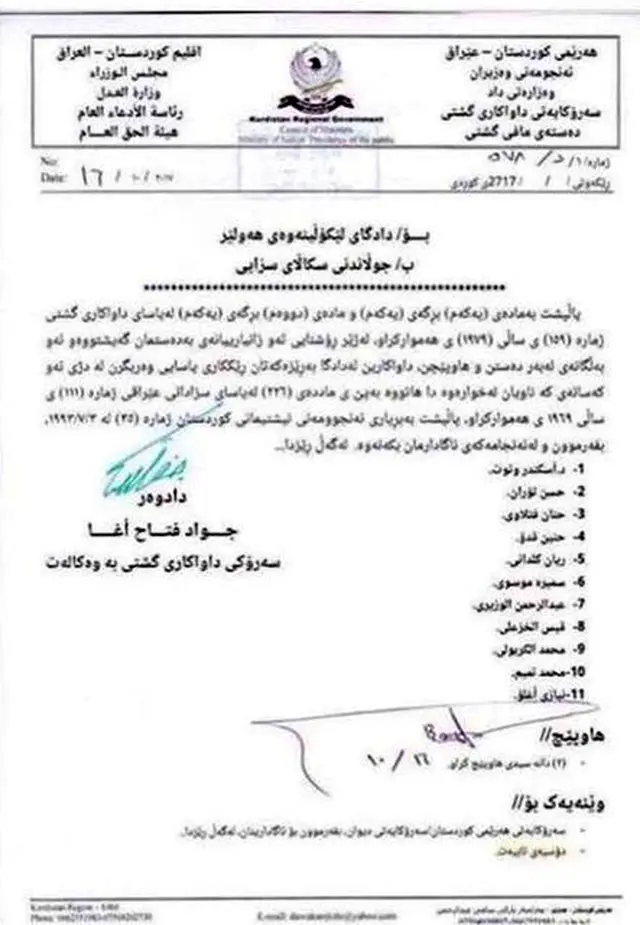 هەرێمی کوردستان – عێراق
ئەنجومەنی وەزیران
وەزارەتی داد
سەرۆکایەتی داواکاری گشتی
دەستەی مافی گشتی
اقليم كوردستان – العراق
مجلس الوزراء
وزارة العدل
رئاسة الأدعاء العام
هيئة الحق العام
Kurdistan Regional Government
Council of Ministers
Ministry of Justice Presidency of the public
ژمارە/ ١/د/ ٥٧٨
No:
ڕێکەوتی/ / /2717ی کوردی
Date: ١٦ / ١٠ / ٢٠١٧
بـــۆ/ دادگای لێکۆڵینەوەی هەولێر
ب/ جوڵاندنی سکاڵای سزایی
پاڵپشت بەمادەی (یەکەم) برگەی (یەکەم) و مادەی (دووەم) برگەی (یەکەم) لەیاسای داواکاری گشتی
ژمارە (١٥٩) ی ساڵی (١٩٧٩) ی هەموارکراو، لەژێر ڕۆشنایی ئەو زانیارییانەی بەدەستمان گەیشتووەو ئەو
بەڵگانەی لەبەر دەستن و هاوپێچن، داواکارین لەدادگا بەڕێزەکەتان ڕێککاری یاسایی وەربگرن لە دژی ئەو
کەسانەی کە ناویان لەخوارەوە دا هاتووە بەپێ ی ماددەی (٢٢٦) لەیاسای سزادانی عێراقی ژمارە (١١١) ی
ساڵی ١٩٦٩ ی هەموارکراو، پاڵپشت بەبڕیاری ئەنجوومەنی نیشتیمانی کوردستان ژمارە (٣٥) لە ١٩٩٣/٧/٣،
بفەرموون و لەئەنجامەکەی ئاگادارمان بکەنەوە. لەگەڵ ڕێزدا...
1- د.أسکندر وتوت.
2- حسن تۆران.
3- حنان فتلاوی.
4- حنین قدۆ.
5- ریان کلدانی.
6- سمیرە موسوی.
7- عبدالرحمن الوزیری.
8- قیس الخزعلی.
9- محمد الکربولی.
10-محمد تمیم.
11-نیازی أغلۆ.
دادوەر
جـــواد فتـــاح أغـــا
سەرۆکی داواکاری گشتی بە وەکالەت
هاوپێچ//
- (٢) دانە سیدی هاوپێچ کراو.
١٦ / ١٠
وێنەیەک بۆ//
- سەرۆکایەتی هەرێمی کوردستان/سەرۆکایەتی دیوان، بفەرموون بۆ ئاگاداریتان، لەگەڵ ڕێزدا.
- دۆسیەی تایبەت.
Kurdistan Region – Erbil